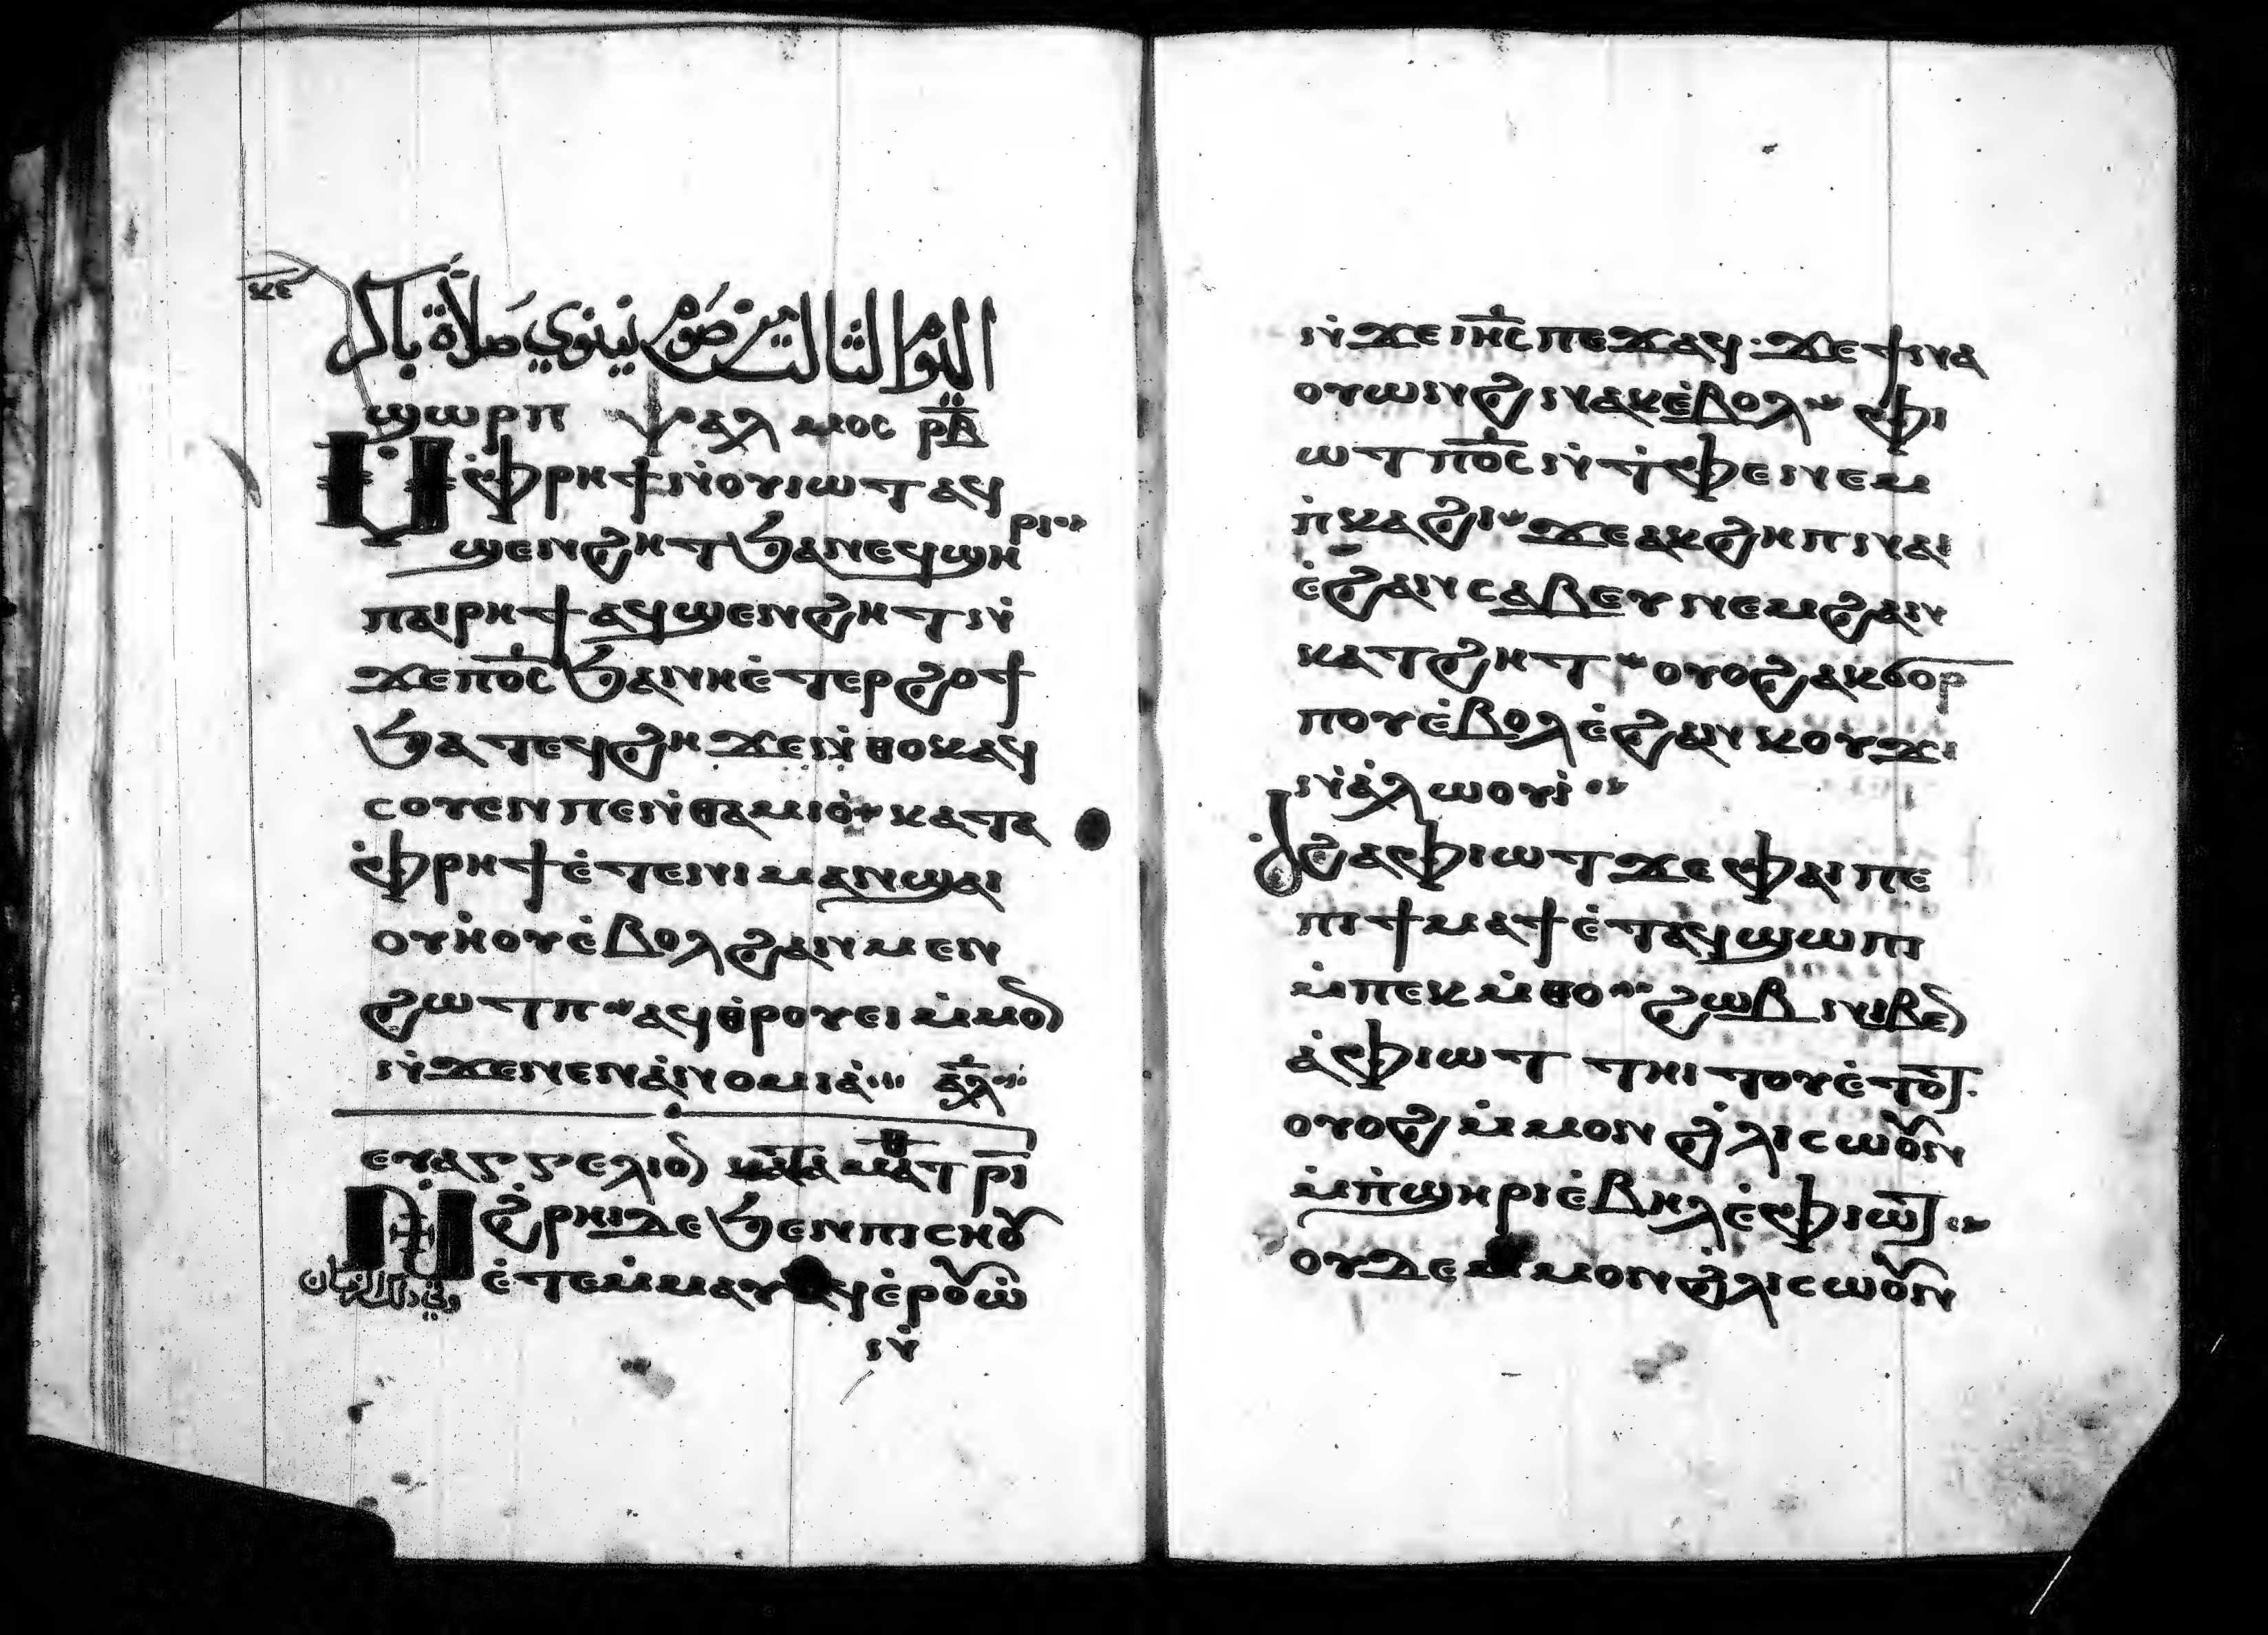 ⲕⲉ
اليوم الثالث من صوم نينوي صلاة باكر
ϣⲱⲣⲡ ⲯⲁⲗⲙⲟⲥ ⲣ̅ⲃ̅
Ⲙ̀ⲫⲣⲏϯ ⲛ̀ⲟⲩⲓⲱⲧ ⲁϥ
ϣⲉⲛϩⲏⲧ ϧⲁ ⲛⲉϥϣⲏ
ⲣⲓ
ⲡⲁⲓⲣⲏϯ ⲁϥϣⲉⲛϩⲏⲧ ⲛ̀
ϫⲉ ⲡⲟ̅ⲥ̅ ϧⲁ ⲛⲏⲉ̀ⲧⲉⲣϩⲟϯ
ϧⲁ ⲧⲉϥϩⲏ ϫⲉ ⲛ̀ⲑⲟⲕ ⲁϥ
ⲥⲟⲩⲉⲛ ⲡⲉⲛⲑⲁⲙⲓⲟ̀ ⲕⲁⲧⲁ
ⲙ̀ⲫⲣⲏϯ ⲉ̀ⲧⲉ ⲛⲓⲙⲁⲛϣⲁⲓ
ⲟⲩⲏⲟⲩ ⲉ̀ⲃⲟⲗ ϩⲁ ⲛⲓⲙⲁⲛ
ϩⲱⲧⲡ ⲁϥⲑⲣⲟⲩⲉⲓ ⲙ̀ⲙⲟⲛ
ⲛ̀ϫⲉ ⲛⲉⲛⲁ̀ⲛⲟⲙⲓⲁ̀ ⲁ̅ⲗ̅
ⲉⲩⲁⲅⲅⲉⲗⲓⲟⲛ ⲕⲁⲧⲁ ⲙⲁⲧ ⲣ̅ⲓ̅
Ⲛ̀ϩ̀ⲣⲏⲓ ⲇⲉ ϧⲉⲛ ⲡⲓⲥⲏⲟⲩ
ⲉ̀ⲧⲉⲙ̀ⲙⲁⲩ ⲁϥⲉ̀ⲣⲟⲩⲱ̀
وفي ذلك الزمان
ⲛ̀
ⲛ̀ϫⲉ ⲓⲏ̅ⲥ̅ ⲡⲉϫⲁϥ ϫⲉ ϯⲛⲁ
ⲟⲩⲱⲛϩ ⲛⲁⲕ ⲉ̀ⲃⲟⲗ ⲫⲓ
ⲱⲧ ⲡⲟ̅ⲥ̅ ⲛ̀ⲧ̀ⲫⲉ ⲛⲉⲙ
ⲡ̀ⲕⲁϩⲓ ϫⲉ ⲁⲕϩⲉⲡ ⲛⲁⲓ
ⲉ̀ϩⲁⲛⲥⲁⲃⲉⲩ ⲛⲉⲙ ϩⲁⲛ
ⲕⲁⲧϩⲏⲧ ⲟⲩⲟϩ ⲁⲕϭⲟⲣ
ⲡⲟⲩ ⲉ̀ⲃⲟⲗ ⲉ̀ϩⲁⲛⲕⲟⲩϫⲓ
ⲛ̀ⲁ̀ⲗⲱⲟⲩⲓ̀
ⲁ̀ϩⲁ ⲫⲓⲱⲧ ϫⲉ ⲫⲁⲓ ⲡⲉ
ⲡⲓϯⲙⲁϯ ⲉ̀ⲧⲁϥϣⲱⲡⲓ
ⲙ̀ⲡⲉⲕⲙ̀ⲑⲟ ϩⲱⲃ ⲛⲓⲃⲉⲛ
ⲁ̀ ⲫⲓⲱⲧ ⲧⲏⲓⲧⲟⲩ ⲉ̀ⲧⲟⲧ
ⲟⲩⲟϩ ⲙ̀ⲙⲟⲛ ϩ̀ⲗⲓ ⲥⲱⲟⲩⲛ
ⲙ̀ⲡ̀ϣⲏⲣⲓ ⲉ̀ⲃⲏⲗ ⲉ̀ⲫⲓⲱⲧ
ⲟⲩⲇⲉ ⲙ̀ⲙⲟⲛ ϩ̀ⲗⲓ ⲥⲱⲟⲩⲛ